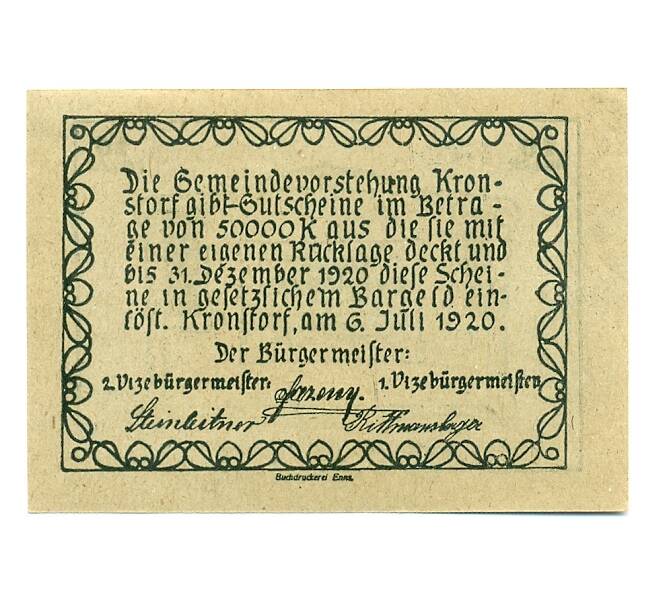 Die Gemeindevorstehung Kron-
storf gibt Gutscheine im Betra-
ge von 50000 K aus die sie mit
einer eigenen Rücklage deckt und
bis 31. Dezember 1920 diese Schei-
ne in gesetzlichem Bargeld ein-
löst. Kronstorf, am 6. Juli 1920.
Der Bürgermeister:
2. Vizebürgermeister: 1. Vizebürgermeister
Steinleitner
Buchdruckerei Enns.